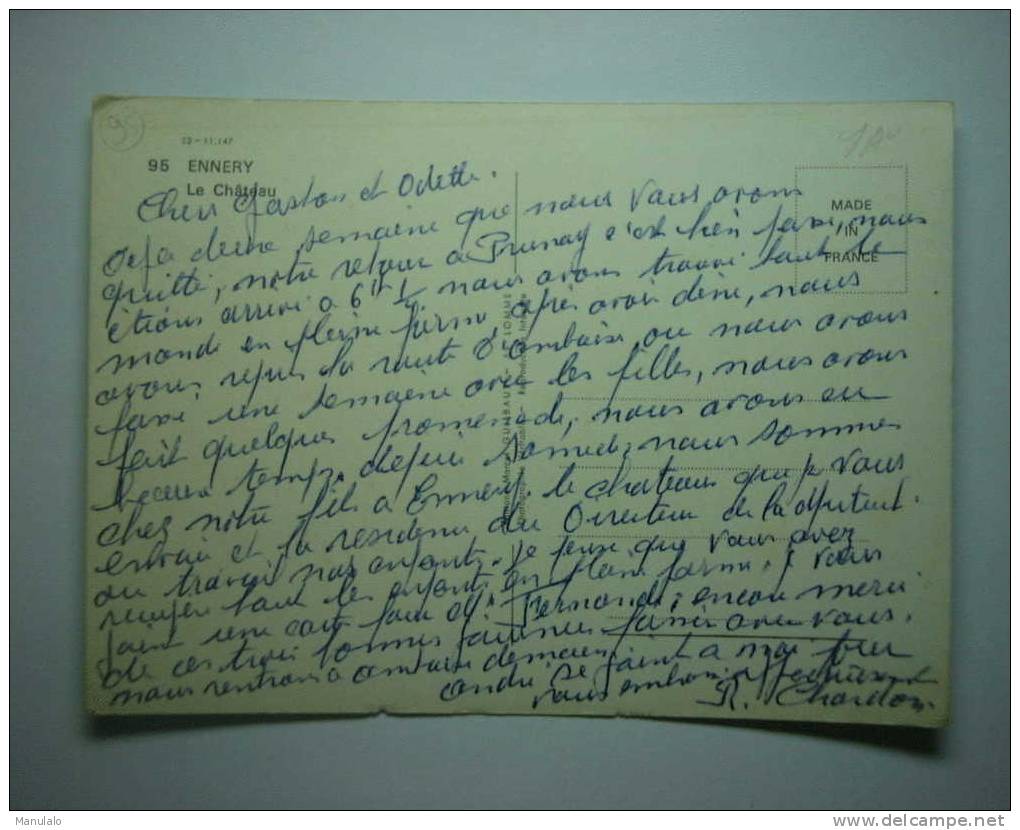 95
22-11.147
95 ENNERY
Le Château
MADE
IN
FRANCE
Chers Gaston et Odette.
deja deux semaine que nous vous avons
quitté, notre retour a Prunay c'est bien passé, nous
étions arrivé a 6h ½ nous avons trouvé tout le
monde en pleine forme, après avoir diné, nous
avons repris la route d'amboise ou nous avons
passé une semaine avec les filles, nous avons
fait quelques promenade, nous avons eu
beau temps. depuis samedi nous sommes
chez notre fils a Ennery, le chateaux que je vous
envoie et la residence du Directeur de la
ou travail nos enfants. Je pense que vous avez
tous les enfants en pleine forme. je vous
joint une carte pour Fernande, encore merci
de ces trois bonnes passées avec vous.
nous rentrons a amboise demain
andré se joint a moi pour
vous embrasser
R. Chardon
Manulalo
www.delcampe.net